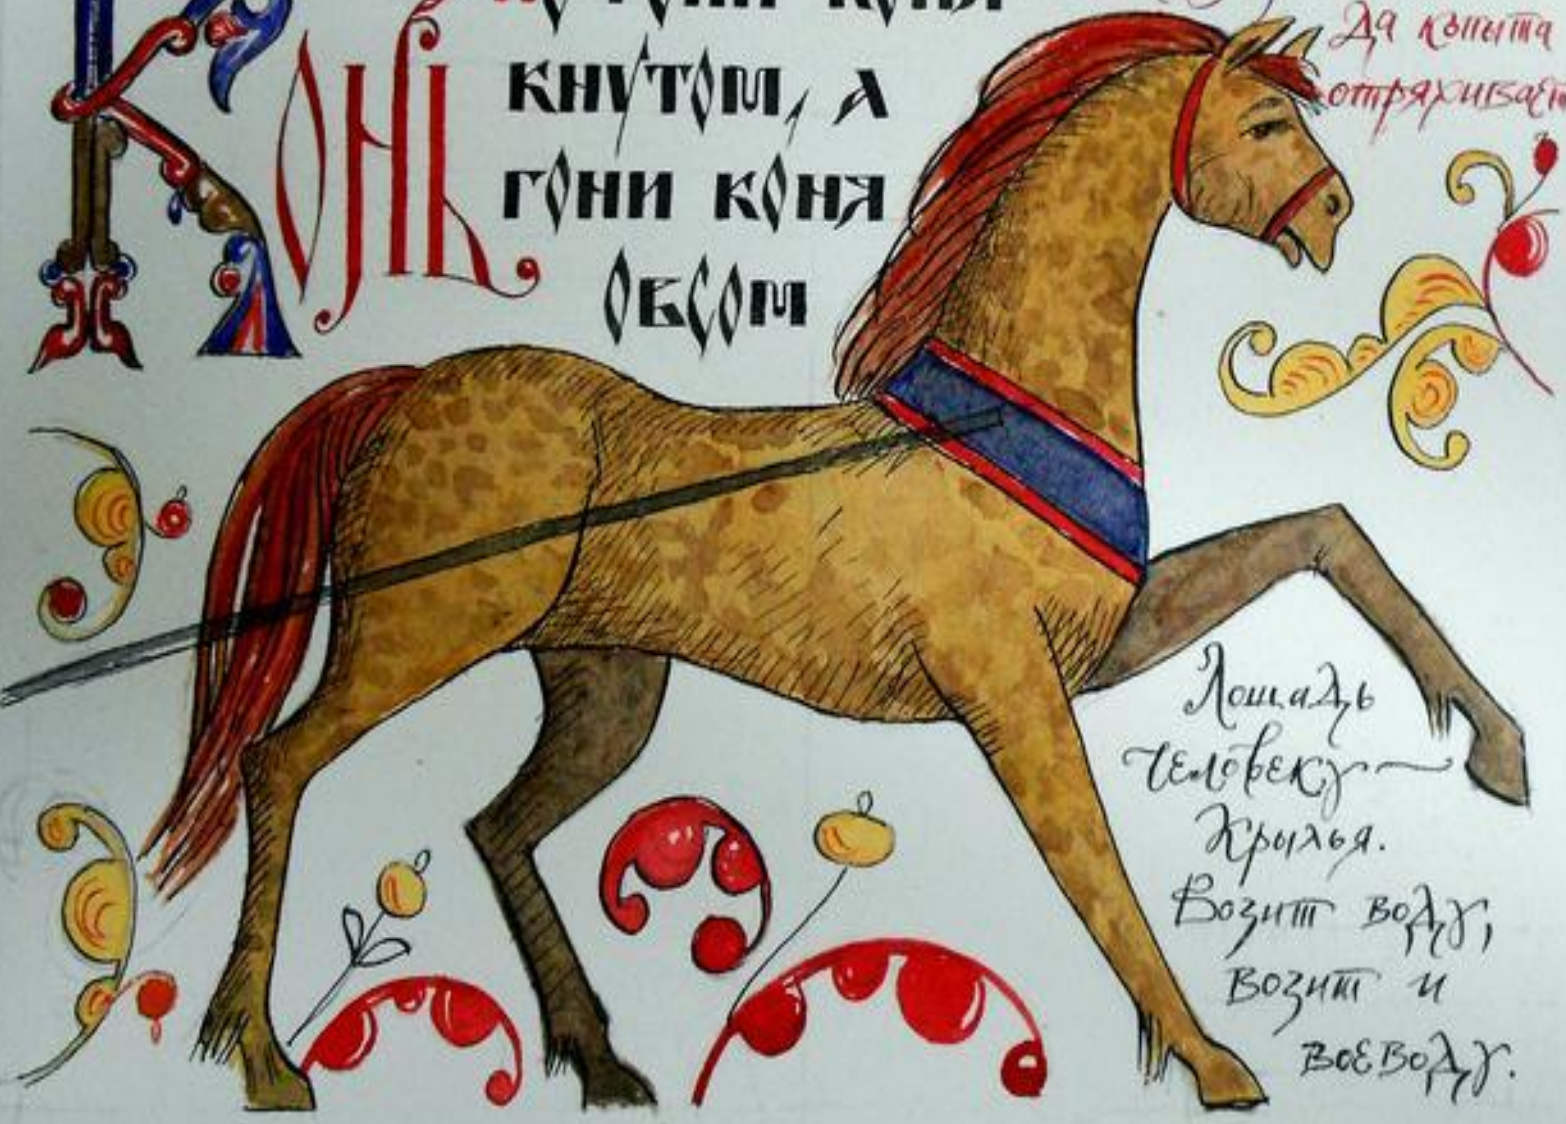 Конь
кнутом, а
гони коня
овсом
Да копыта
отряхивает
Лошадь
человеку
Крылья.
Возит воду,
возит и
воеводу.